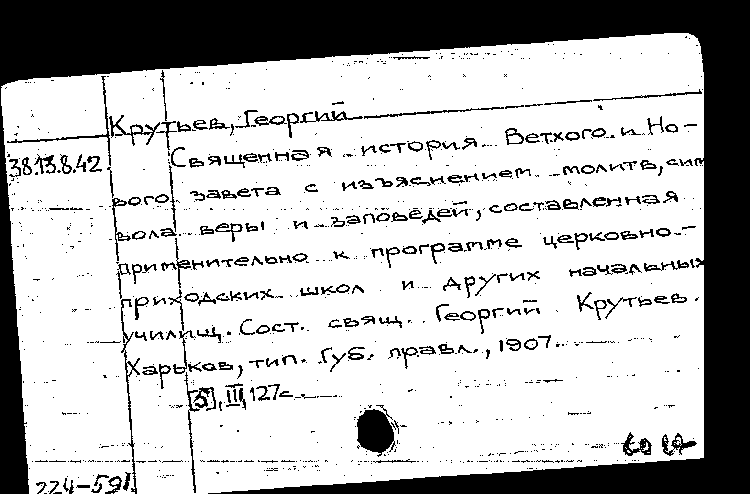 Крутьев, Георгий
38.13.8.42. Священная история Ветхого и Но-
вого завета с изъяснением молитв, сим
вола веры и заповедей, составленная
применительно к программе церковно-
приходских школ и других начальных
училищ. Сост. свящ. Георгий Крутьев.
Харьков, тип. Губ. правл., 1907.
[5], III, 127 с.
224-591.